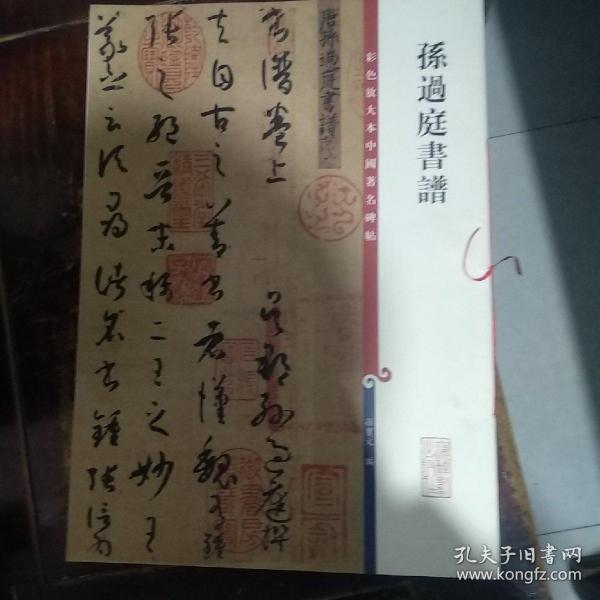 孫過庭書譜
彩色放大本中國著名碑帖
孫寶文 編
書譜卷上 吳郡孫過庭撰
夫自古之善書者漢魏有鍾
張之絕晉末稱二王之妙王
羲之云頃尋諸名書鍾張信為
孔夫子旧书网
www.kongfz.com